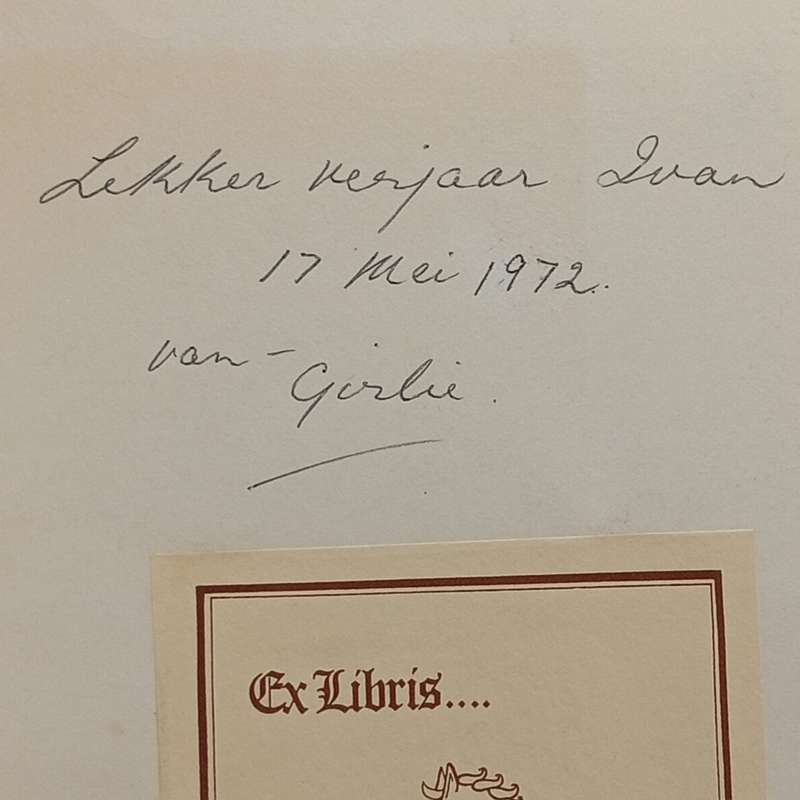 Lekker verjaar Ivan
17 Mei 1972.
van – Girlie.
Ex Libris....